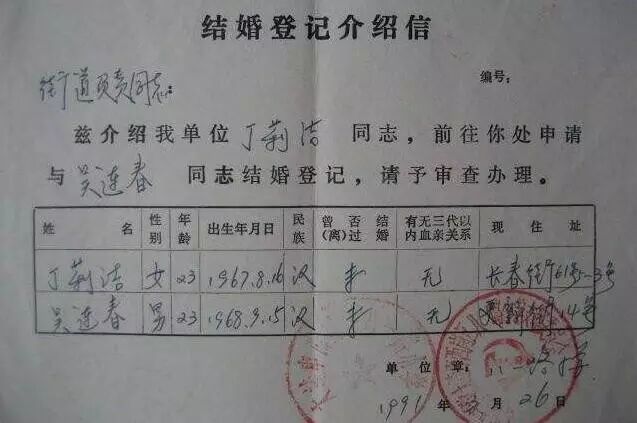 结婚登记介绍信
街道负责同志：
编号：
兹介绍我单位 丁莉洁 同志，前往你处申请
与 吴连春 同志结婚登记，请予审查办理。
姓名 性别 年龄 出生年月日 民族 曾否结(离)过婚 有无三代以内血亲关系 现住址
丁莉洁 女 23 1967.8.16 汉 未 无 长春街61号-3号
吴连春 男 23 1968.9.15 汉 未 无 14号
单位章：
1991 年 月 26 日